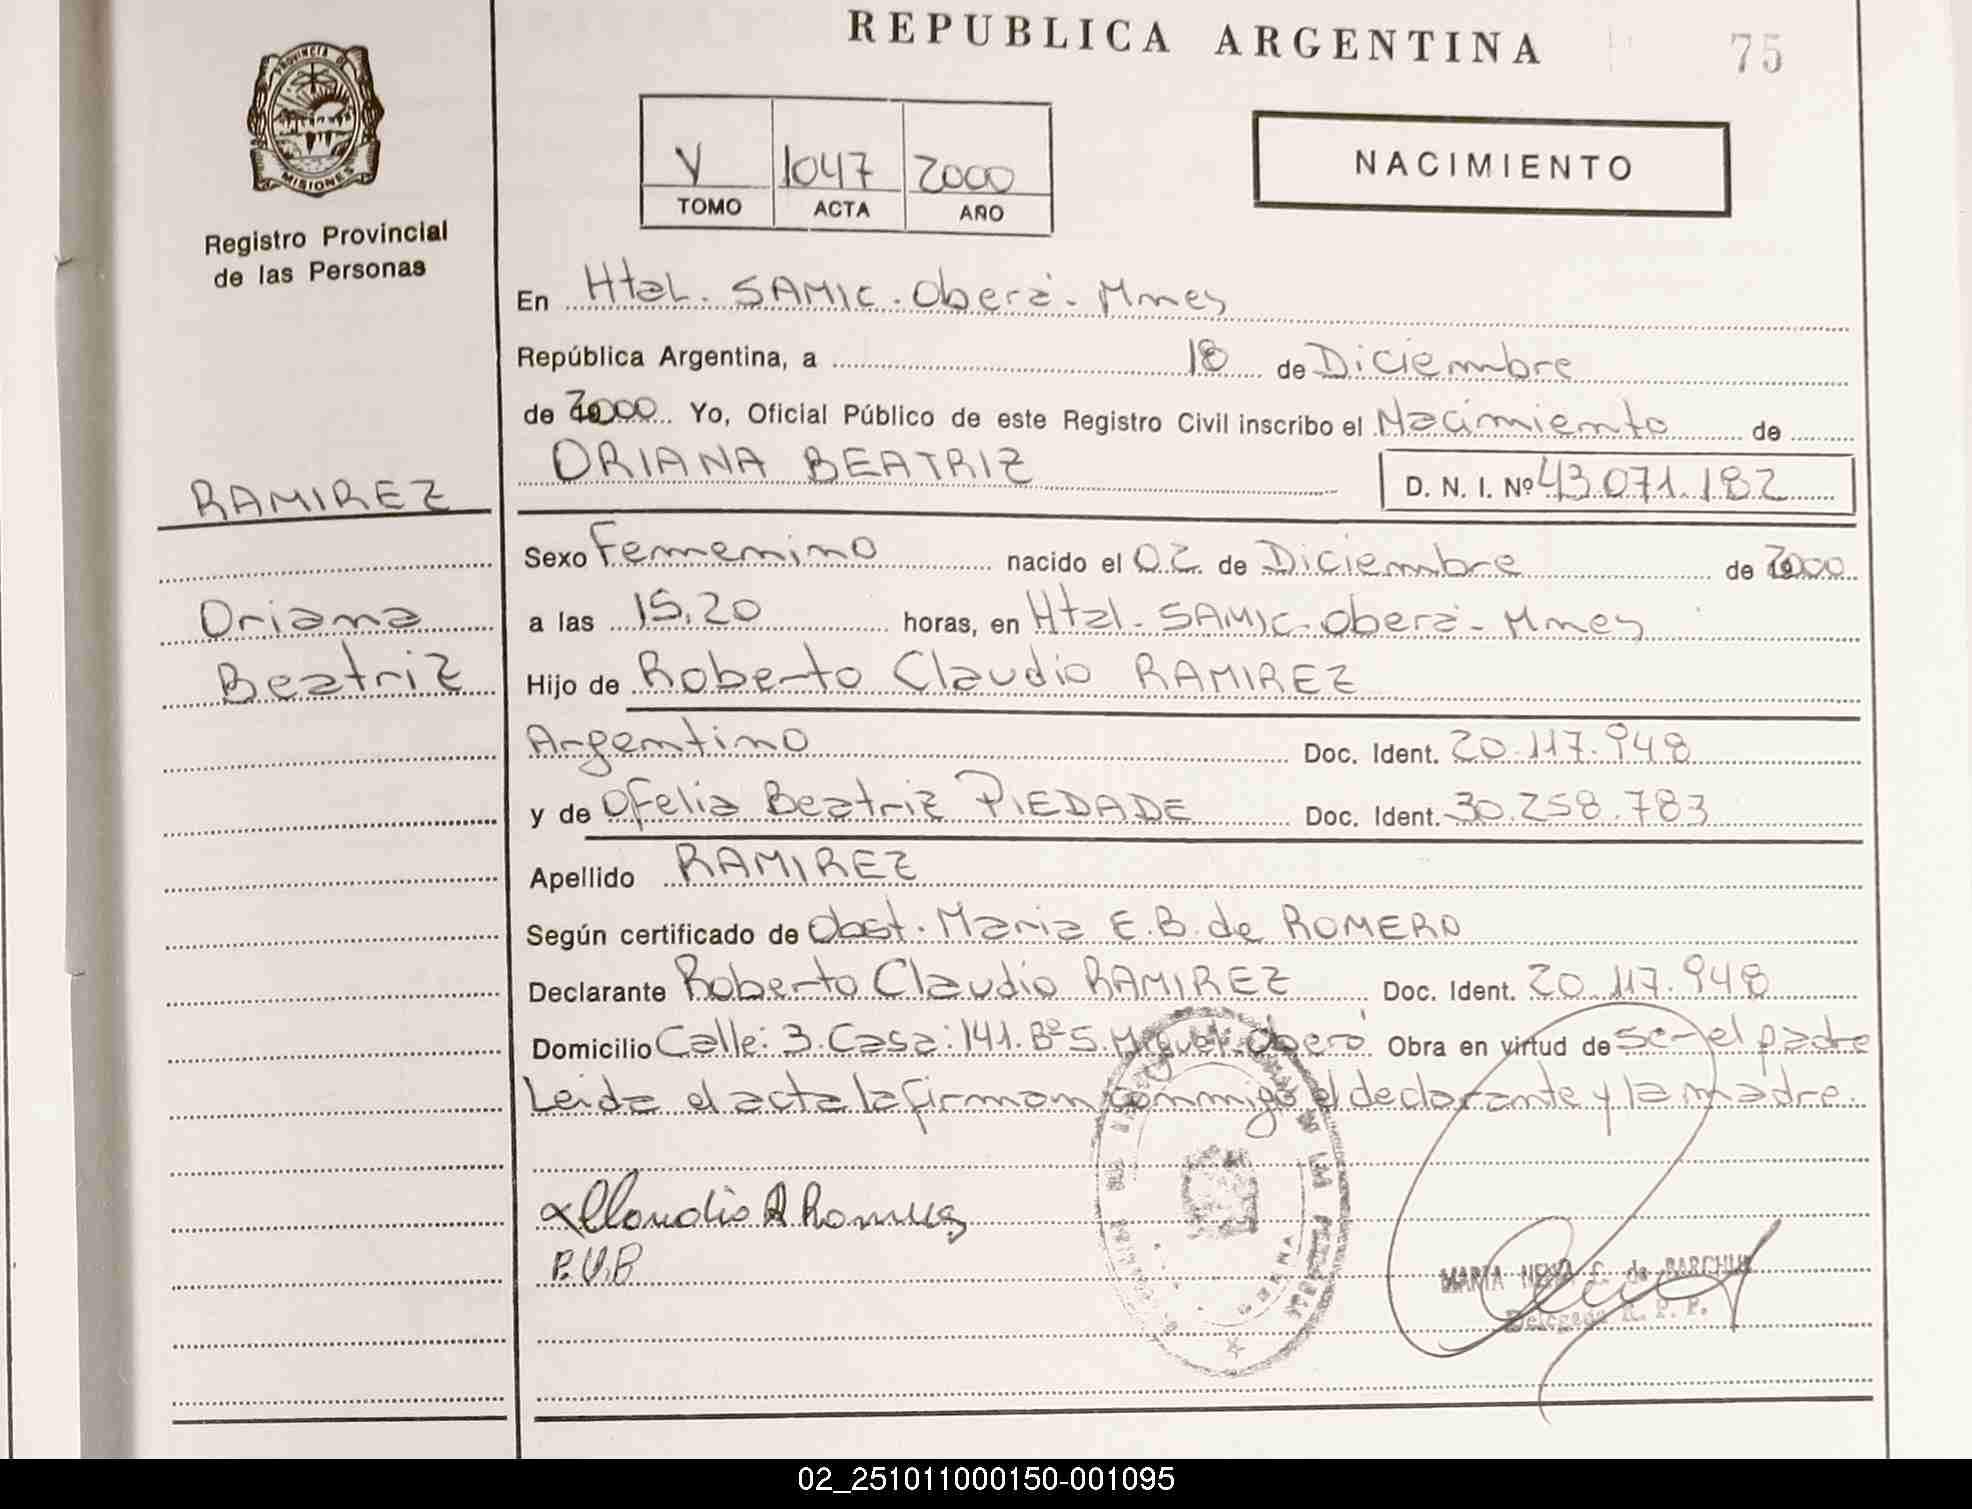 REPUBLICA ARGENTINA
75
PROVINCIA DE
MISIONES
Registro Provincial
de las Personas
V 1047 2000
TOMO ACTA AÑO
NACIMIENTO
En Htal. SAMIC. Oberá - Mnes
República Argentina, a 18 de Diciembre
de 2000 Yo, Oficial Público de este Registro Civil inscribo el Nacimiento de
ORIANA BEATRIZ D. N. I. Nº 43.071.182
RAMIREZ
Oriana
Beatriz
Sexo Femenino nacido el 02 de Diciembre de 2000
a las 15.20 horas, en Htal. SAMIC. Oberá - Mnes
Hijo de Roberto Claudio RAMIREZ
Argentino Doc. Ident. 20.117.948
y de Ofelia Beatriz PIEDADE Doc. Ident. 30.258.783
Apellido RAMIREZ
Según certificado de Obst. Maria E.B. de ROMERO
Declarante Roberto Claudio RAMIREZ Doc. Ident. 20.117.948
Domicilio Calle: 3. Casa: 141. Bº S. Miguel. Oberá Obra en virtud de ser el padre
Leida el acta la firman conmigo el declarante y la madre.
P.V.B
MARIA C. de
Delegada R. P. P.
02_251011000150-001095